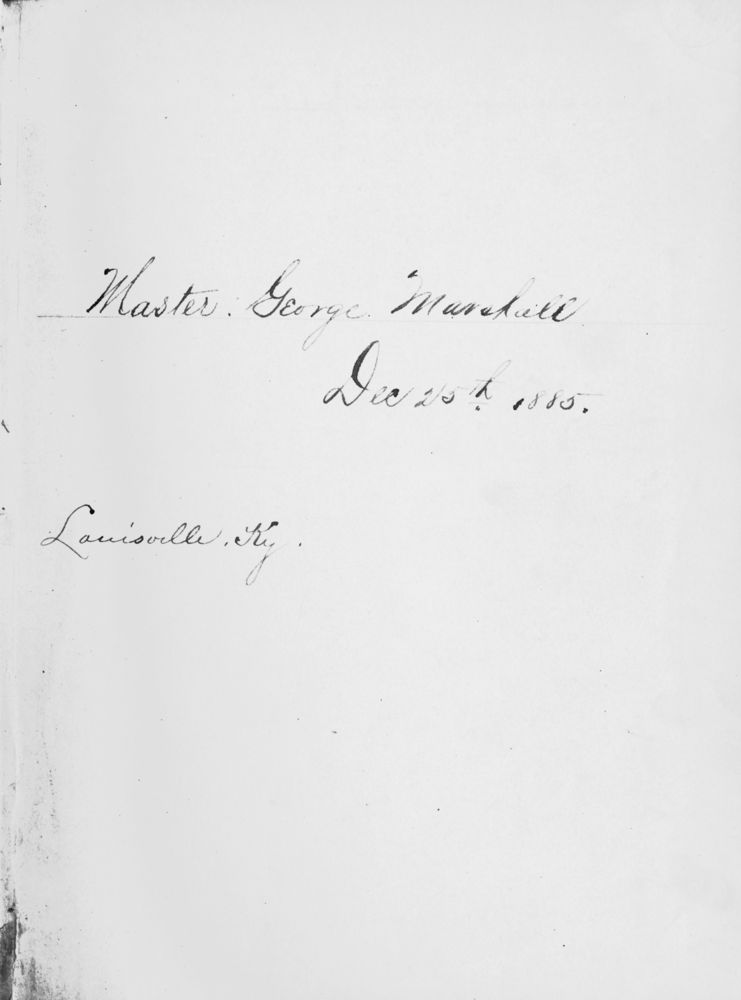 Master. George Marshall
Dec 25th 1885.
Louisville. Ky.